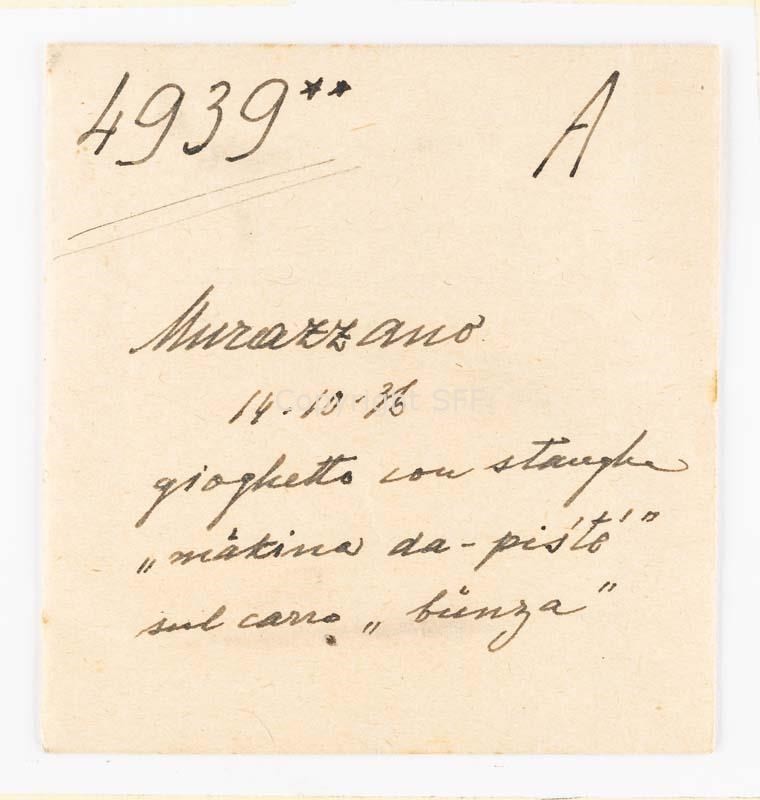 4939** A
Murazzano
14-10-36
Copyright SFF
gioghetto con stanghe
„màkina da-pistó"
sul carro „bünza"